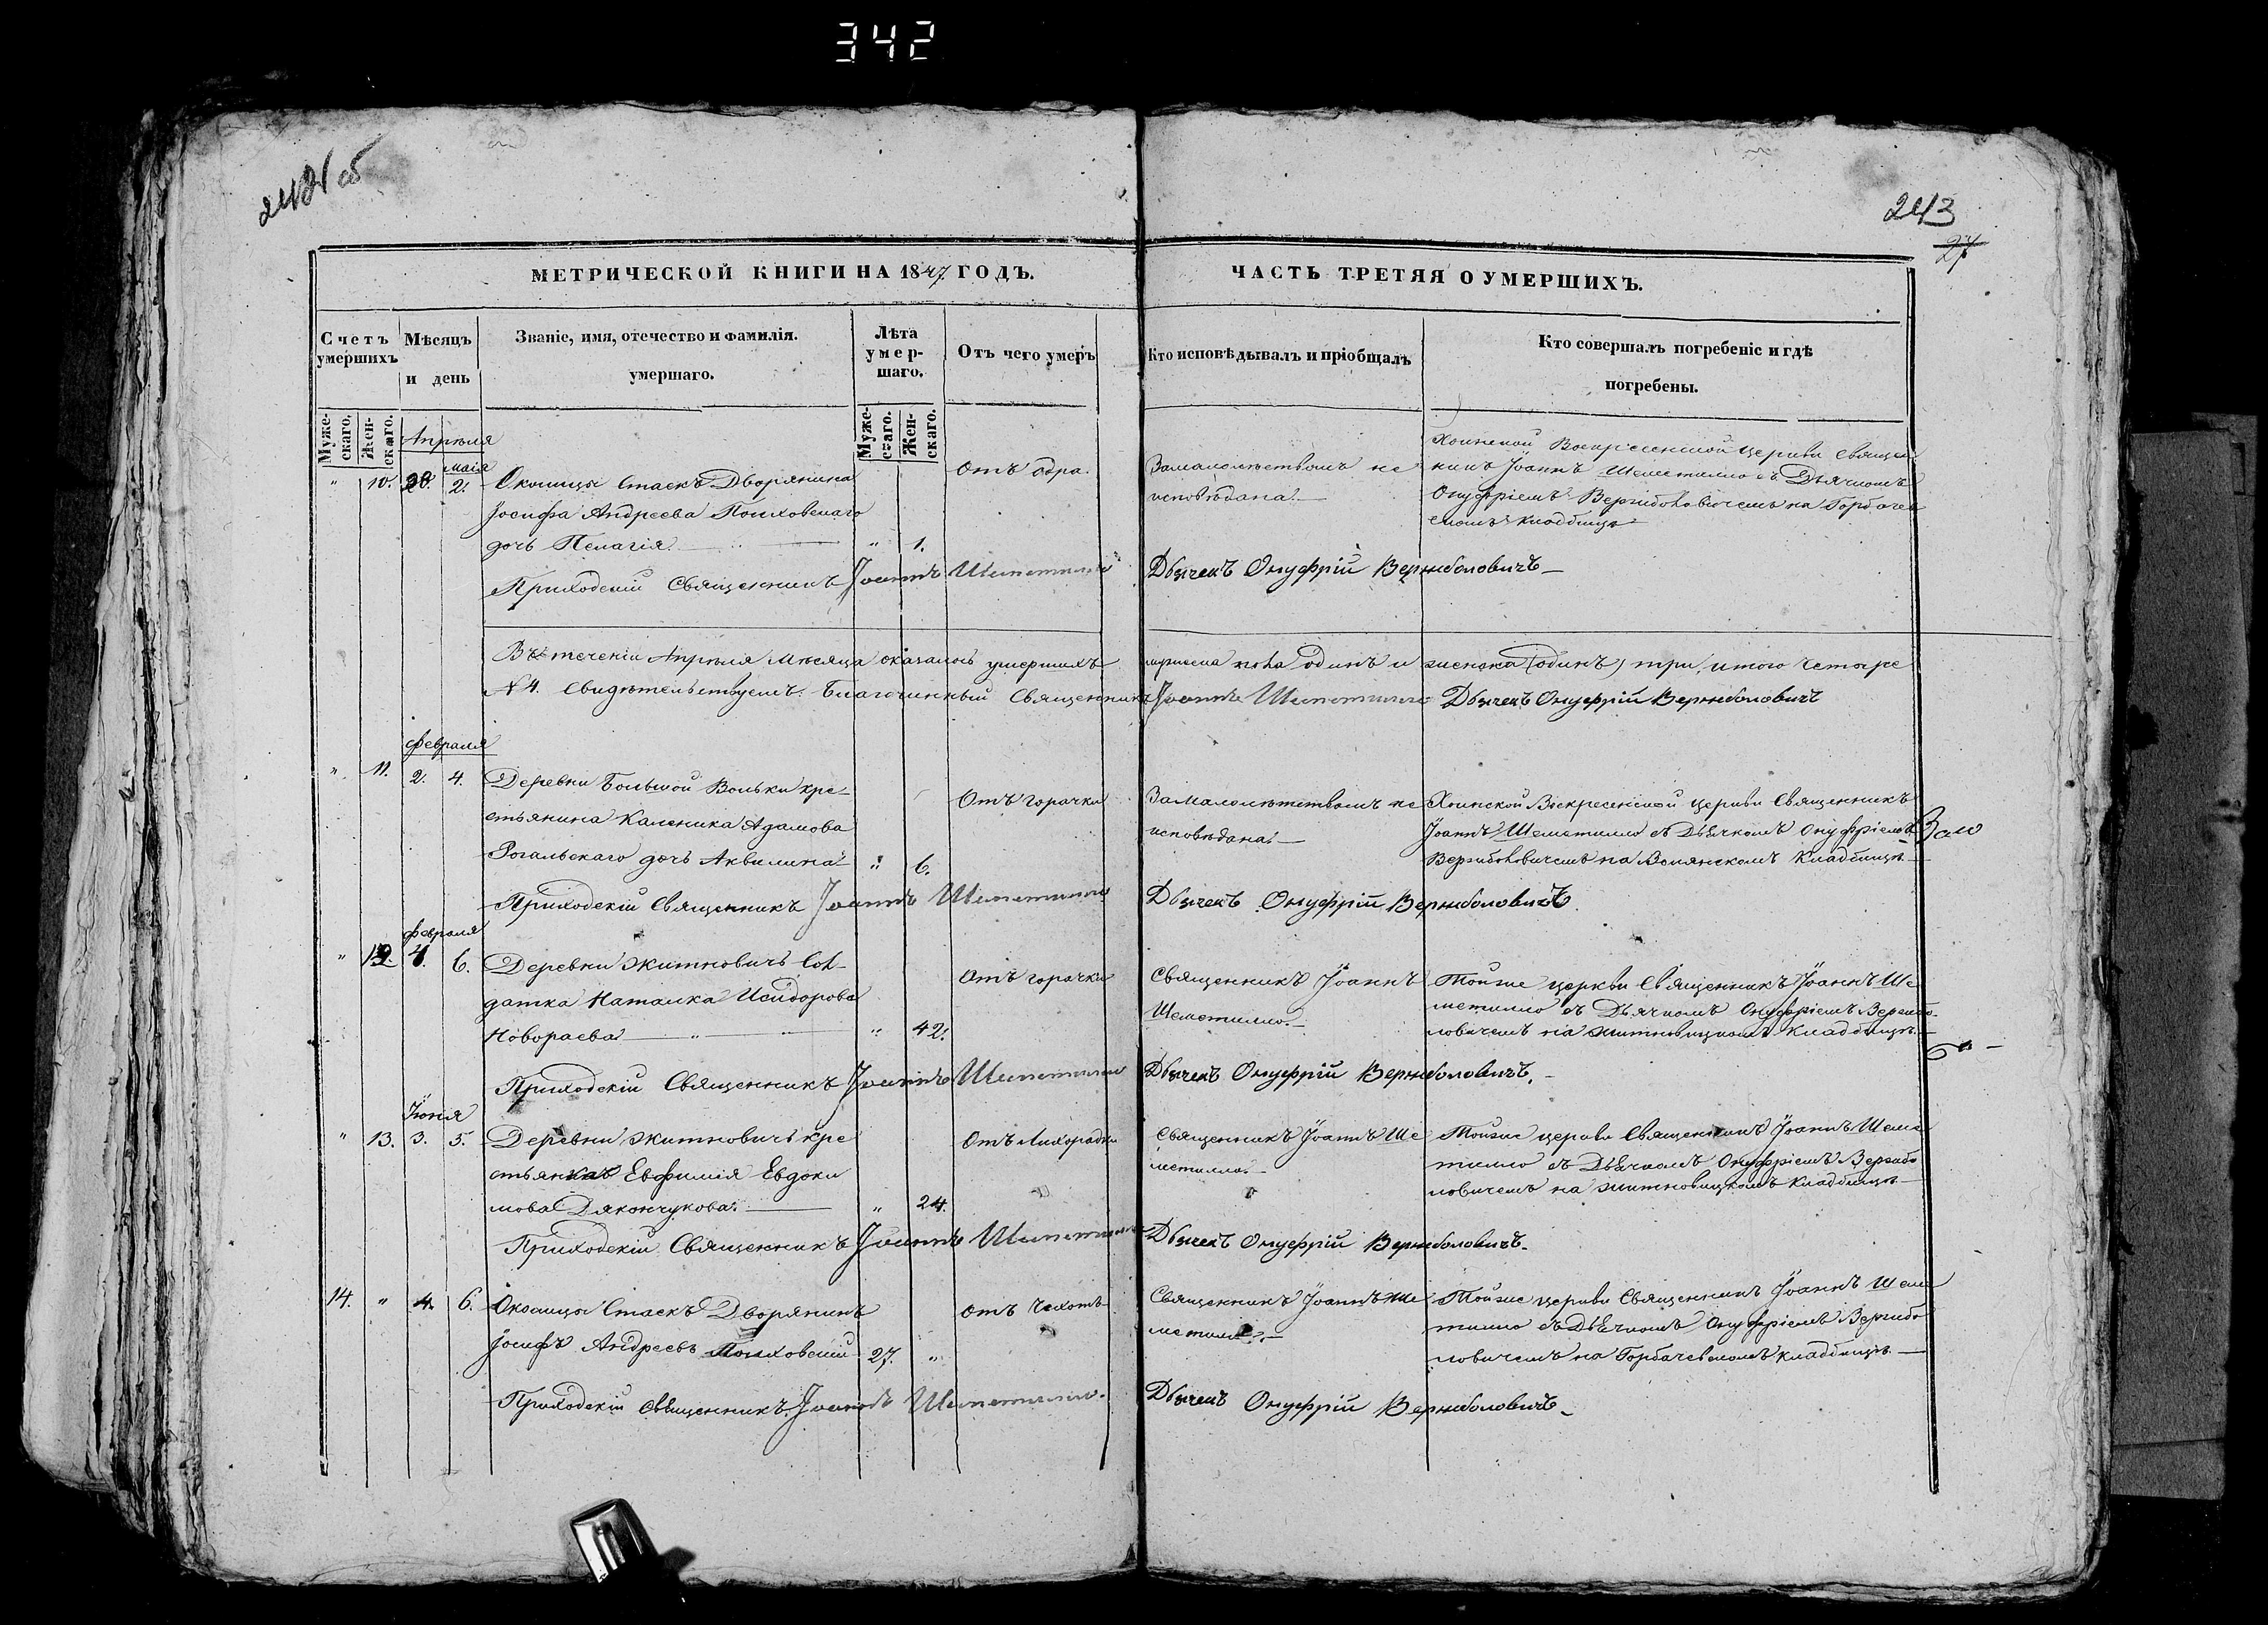 342
243
27
МЕТРИЧЕСКОЙ КНИГИ НА 1847 ГОДЪ.
ЧАСТЬ ТРЕТЯЯ О УМЕРШИХЪ.
Счетъ умершихъ
Мѣсяцъ и день
Званіе, имя, отечество и фамилія.
умершаго.
Лѣта умер-
шаго.
Отъ чего умеръ
Кто исповѣдывалъ и пріобщалъ
Кто совершалъ погребеніе и гдѣ
погребены.
Муже-
скаго.
Жен-
скаго.
Муже-
скаго.
Жен-
скаго.
Апрѣля
маія
" 10. 28. 2. Околицы Стаекъ Дворянина
Іосифа Андреева
дочь Пелагія " 1.
Отъ одра.
Замалолѣтствомъ не
исповѣдана.
Воскресенской церкви Священ
никъ Іоаннъ Шеметилло съ Дьячкомъ
Онуфріемъ Вержболовичемъ на Горбачев
скомъ кладбищѣ
Приходскій Священникъ Іоаннъ Шеметилло
Дьячекъ Онуфрій Вержболовичъ
Въ теченіи Апрѣля Мѣсяца оказалось умершихъ мужеска пола одинъ и женска (одинъ) три, итого четыре
№ 4. Свидѣтельствуемъ: Благочинный Священникъ Іоаннъ Шеметилло Дьячекъ Онуфрій Вержболовичъ
февраля
" 11. 2. 4. Деревни Большой Вольки кре-
стьянина Каленика Адамова
Рогальскаго дочь Аквилина " 6.
Отъ горячки
Замалолѣтствомъ не
исповѣдана.
Хоинской Воскресенской церкви Священникъ
Іоаннъ Шеметилло съ Дьячкомъ Онуфріемъ
Вержболовичемъ на Волянскомъ Кладбищѣ.
Приходскій Священникъ Іоаннъ Шеметилло
Дьячекъ Онуфрій Вержболовичъ
февраля
" 12. 4. 6. Деревни Житновичъ Сол-
датка Наталка Исидорова
Новораева " 42.
Отъ горячки
Священникъ Іоаннъ
Шеметилло.
Тойже церкви Священникъ Іоаннъ Ше
метилло съ Дьячкомъ Онуфріемъ Вержбо-
ловичемъ на Житновицкомъ Кладбищѣ.
Приходскій Священникъ Іоаннъ Шеметилло
Дьячекъ Онуфрій Вержболовичъ.
Іюня
" 13. 3. 5. Деревни Житновичъ кре
стьянка Евфимія Евдоки
мова Дякончукова. " 24.
Отъ Лихорадки
Священникъ Іоаннъ Ше
метилло.
Тойже церкви Священникъ Іоаннъ Шеме
тилло съ Дьячкомъ Онуфріемъ Вержбо
ловичемъ на Житновицкомъ Кладбищѣ
Приходскій Священникъ Іоаннъ Шеметилло
Дьячекъ Онуфрій Вержболовичъ.
14. " 4. 6. Околицы Стаекъ Дворянинъ
Іосифъ Андреевъ 27. "
отъ Чахотъ
Священникъ Іоаннъ Ше
метилло.
Тойже церкви Священникъ Іоаннъ Шеме
тилло съ Дьячкомъ Онуфріемъ Вержбо
ловичемъ на Горбачевскомъ кладбищѣ.
Приходскій Священникъ Іоаннъ Шеметилло.
Дьячекъ Онуфрій Вержболовичъ